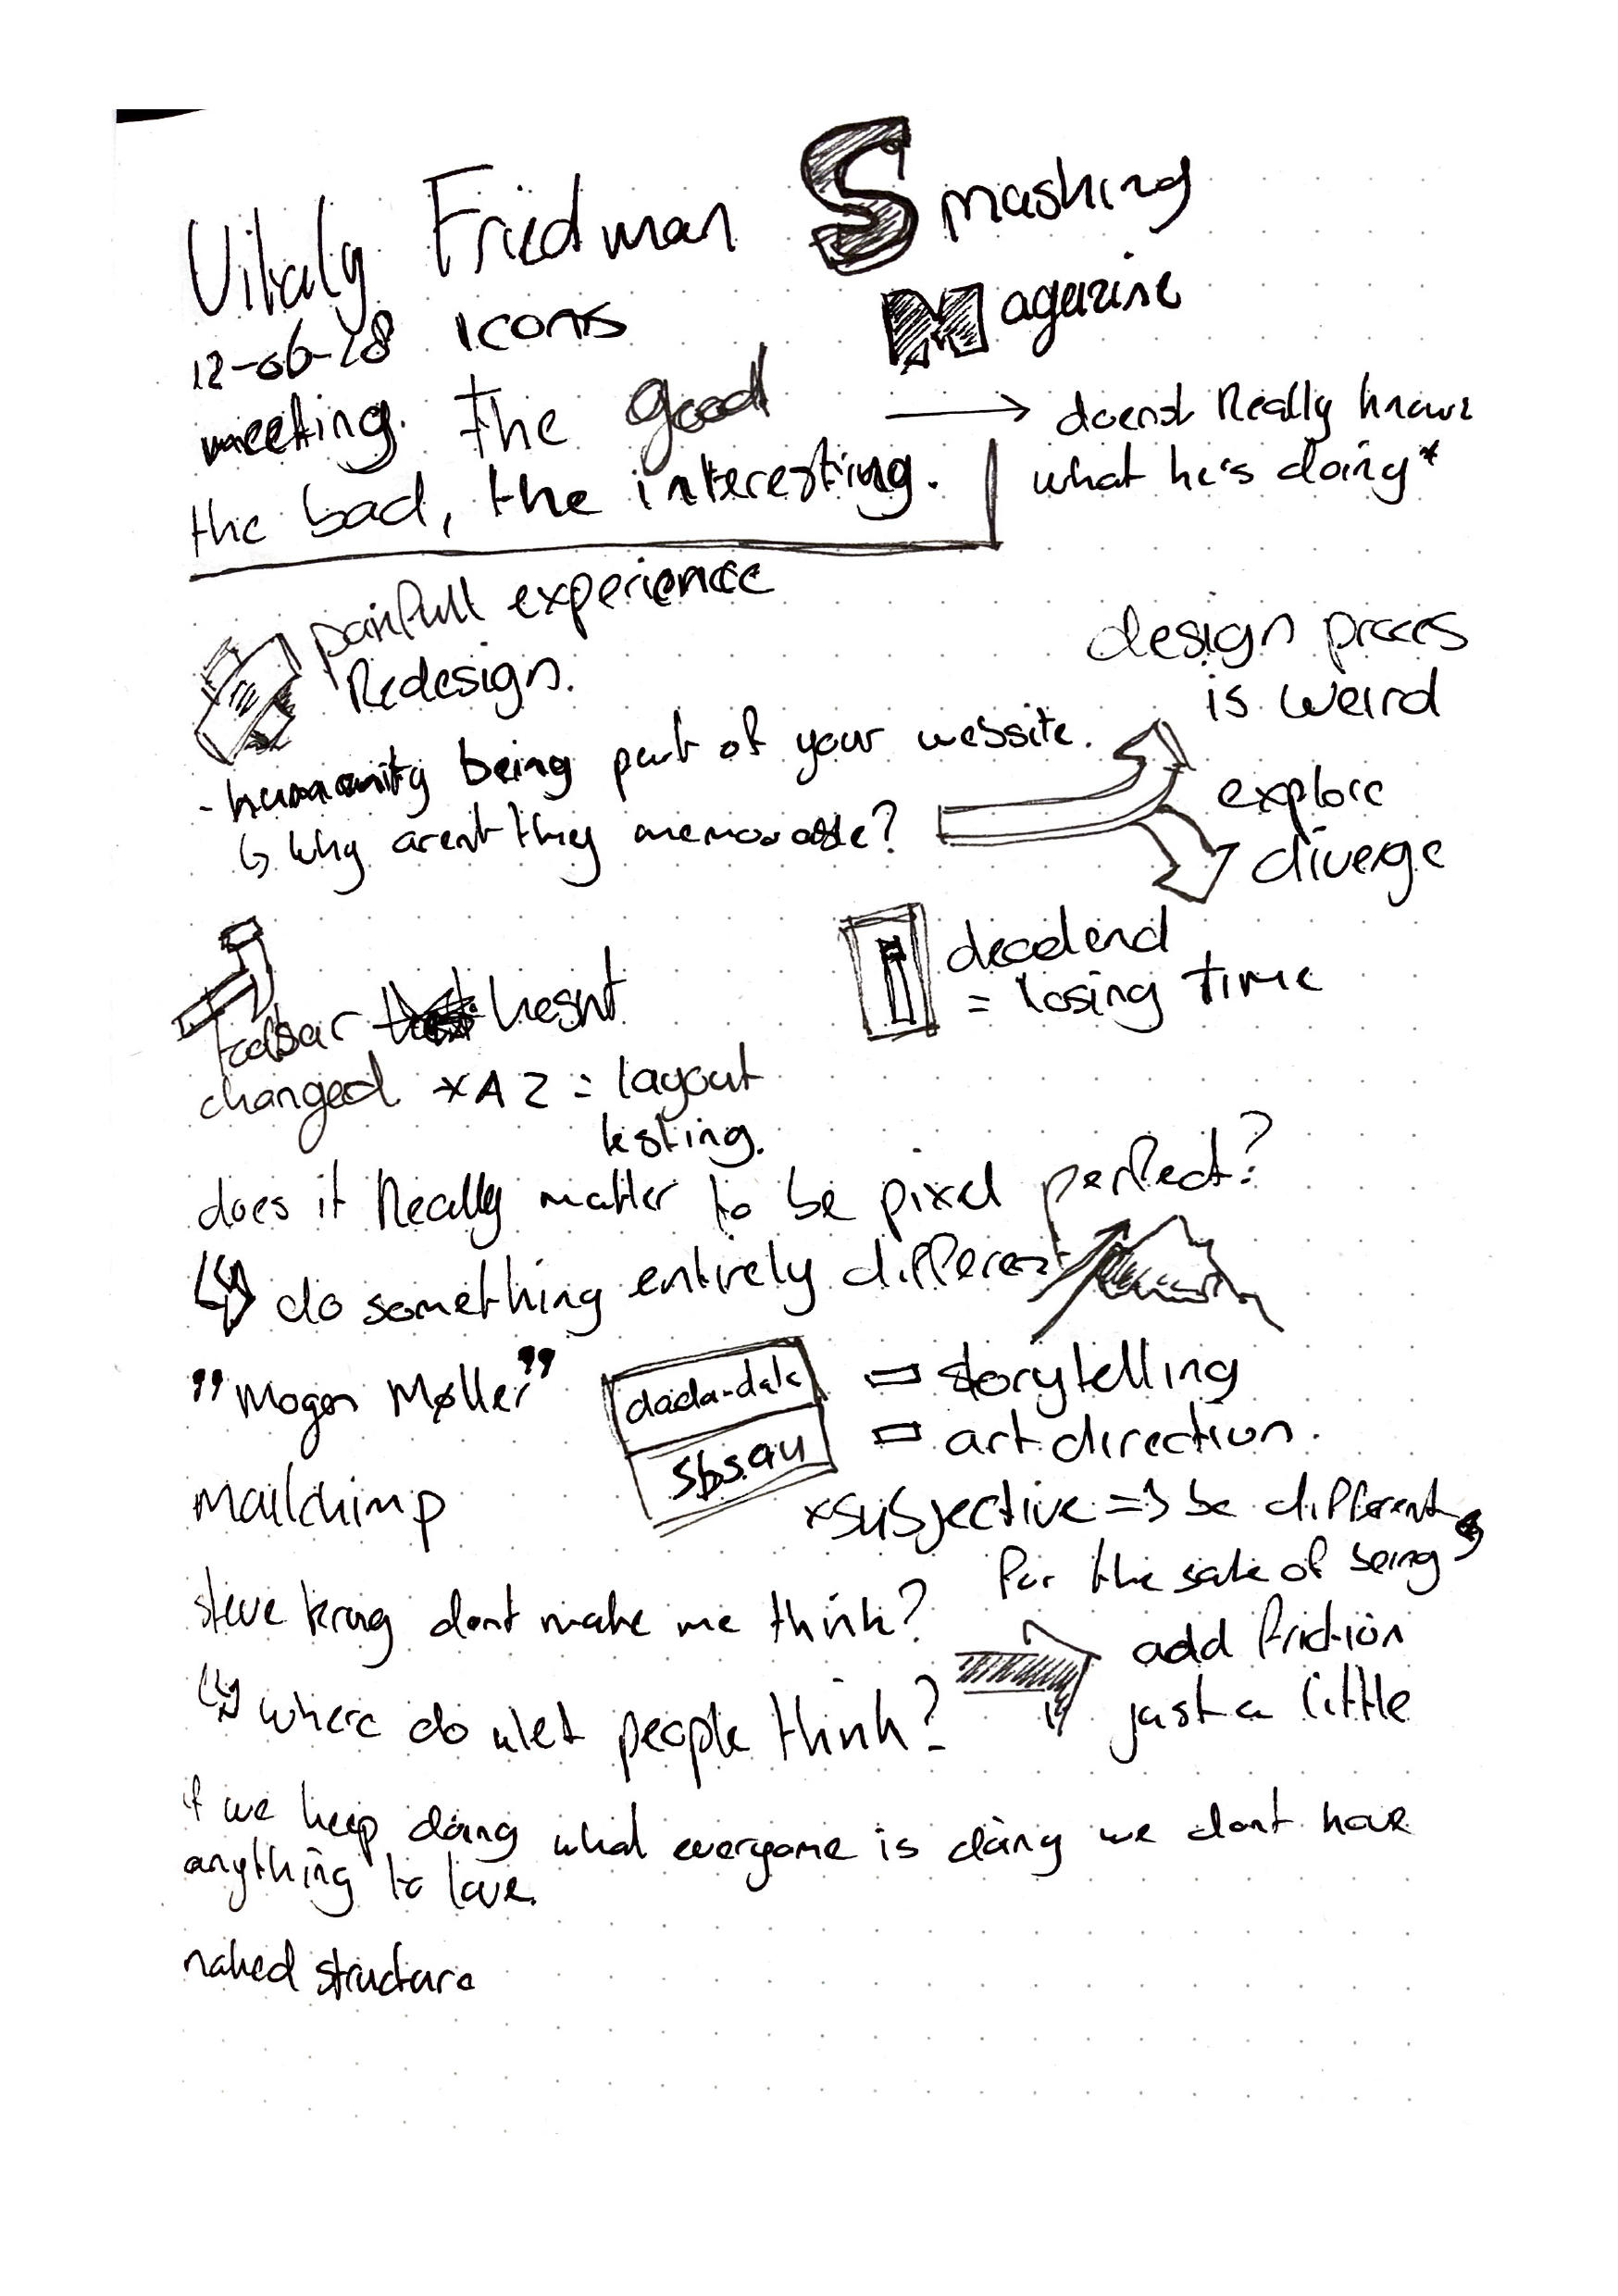 Vitaly Friedman Smashing
Magazine
12-06-18 icons
meeting. The good
the bad, the interesting.
→ doenst Really knows
what he's doing*
painfull experience
Redesign.
design proces
is weird
- humanity being part of your website.
↳ Why arent they memorable?
explore
diverge
deadend
= losing time
toolbar hesnt
changed *A2 = layout
testing.
does it Really matter to be pixel perfect?
↳ do something entirely different
"Mogen Møller"
dada-data = storytelling
sbs.au = art direction.
mailchimp
*subjective => be different
for the sake of being
steve krug dont make me think?
add friction
just a little
↳ where do w let people think?
if we keep doing what everyone is doing we dont have
anything to love.
naked structure